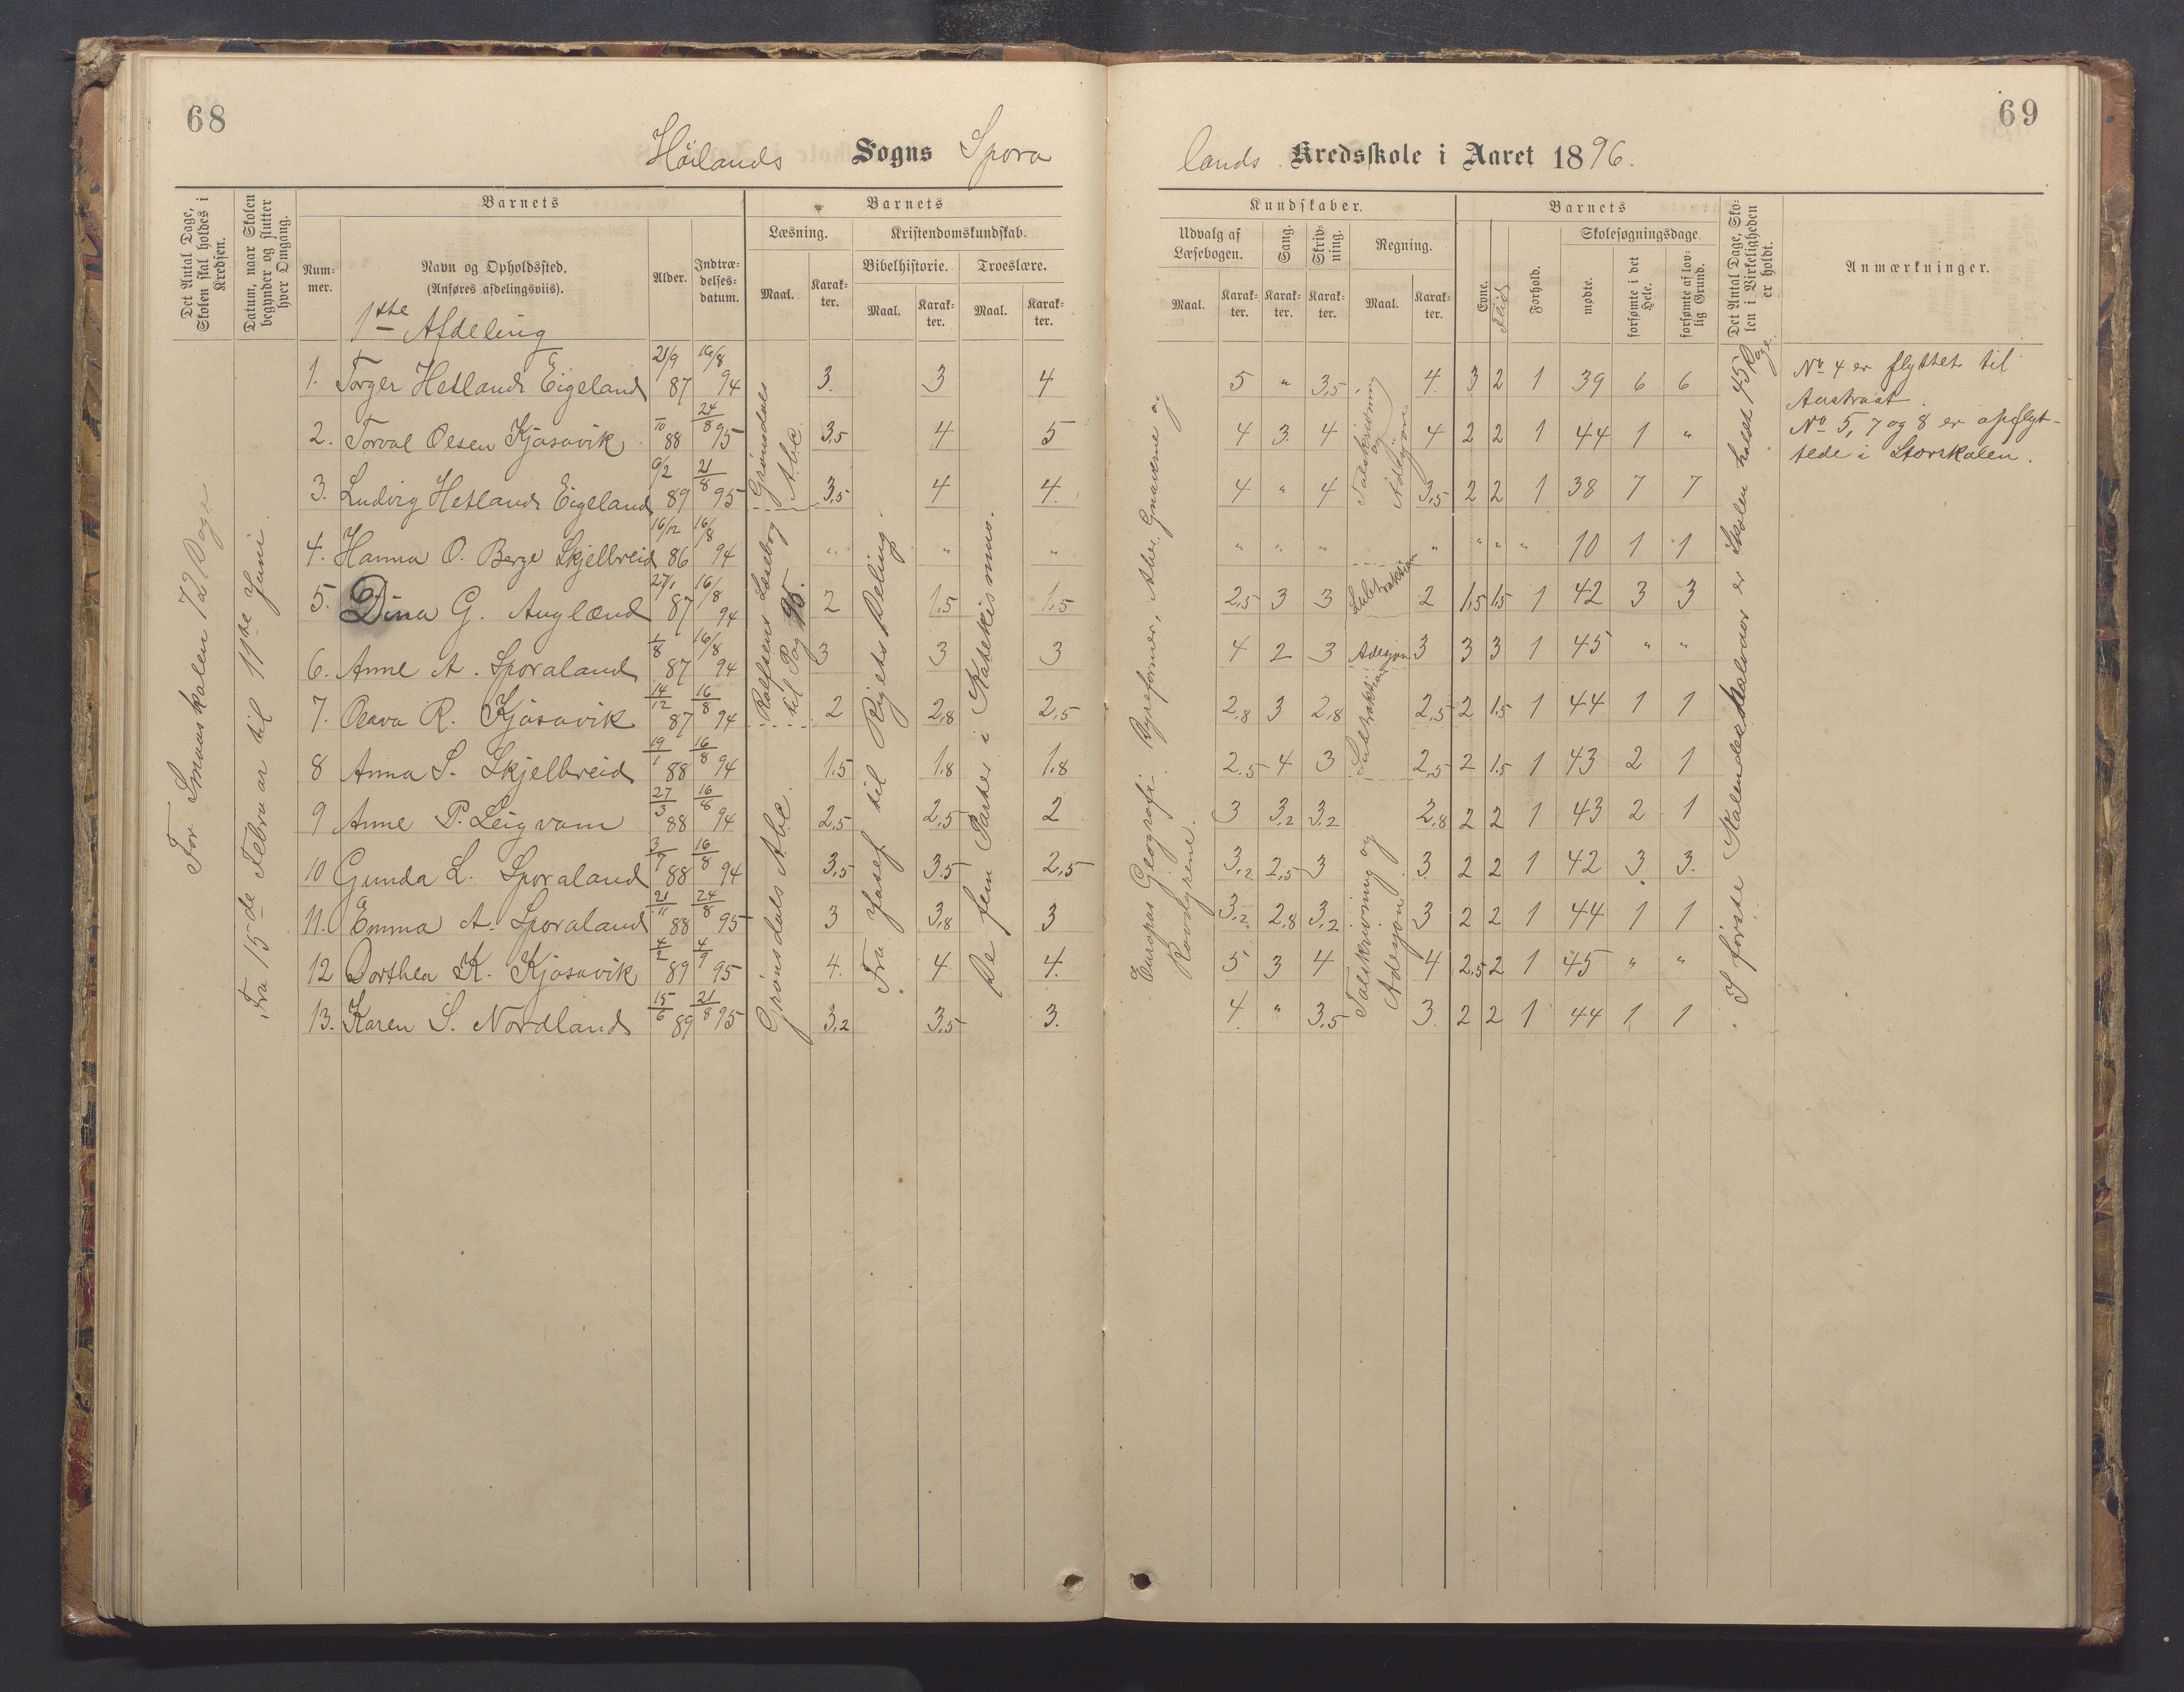 68
Höilands Sogns Spora
Det Antal Dage, Skolen skal holdes i Kredsen.
Datum, naar Skolen begynder og slutter hver Omgang.
Barnets
Barnets
Num-mer.
Navn og Opholdssted.
(Anføres afdelingsviis).
Alder.
Indtræ-delses-datum.
Læsning.
Kristendomskundskab.
Maal.
Karak-ter.
Bibelhistorie.
Troeslære.
Maal.
Karak-ter.
Maal.
Karak-ter.
1ste Afdeling
For Smaaskolen 72 Dage
Fra 15de Februar til 11te Juni
1. Torger Hetland Eigeland 21/9 87 16/8 94 3. 3 4
2. Torval Olsen Kjosavik /10 88 24/8 95 3,5 4 5
3. Ludvig Hetland Eigeland 9/2 89 21/8 95 3,5 4 4.
4. Hanna O. Berge Skjelbreid 16/12 86 16/8 94 " " "
5. Dina G. Auglænd 27/1 87 16/8 94 2 1,5 1,5
6. Anne A. Sporaland 1/8 87 16/8 94 3 3 3
7. Olava R. Kjosavik 14/12 87 16/8 94 2 2,8 2,5
8 Anna S. Skjelbreid 19/1 88 16/8 94 1,5 1,8 1,8
9 Anne P. Leigvam 27/3 88 16/8 94 2,5 2,5 2
10 Gunda L. Sporaland 3/7 88 16/8 94 3,5 3,5 2,5
11. Emma A. Sporaland 21/11 88 24/8 95 3 3,8 3
12 Dorthea K. Kjosavik 4/2 89 4/9 95 4. 4. 4.
13. Karen S. Nordland 15/6 89 21/8 95 3,2 3,5 3.
Grønsdals A.b.c.
Rolfsens Læsebog
til Pag 95.
Grønsdals A.b.c.
Fra Josef til Rigets Deling.
De fem Parter i Katekismus.
69
lands Kredsskole i Aaret 1896.
Kundskaber.
Barnets
Det Antal Dage, Sko-len i Virkeligheden er holdt.
Anmærkninger.
Udvalg af Læsebogen.
Sang.
Skriv-ning.
Regning.
Evne.
Flid
Forhold.
Skolesøgningsdage.
Maal.
Karak-ter.
Karak-ter.
Karak-ter.
Maal.
Karak-ter.
mødte.
forsømte i det Hele.
forsømte af lov-lig Grund.
5 " 3,5 4. 3 2 1 39 6 6
4 3. 4 4 2 2 1 44 1 "
4 " 4 3,5 2 2 1 38 7 7
" " " " " " " 10 1 1
2,5 3 3 2 1,5 1,5 1 42 3 3
4 2 3 Adisjon 3 3 3 1 45 " "
2,8 3 2,8 2,5 2 1,5 1 44 1 1
2,5 4 3 2,5 2 1,5 1 43 2 1
3 3,2 3,2 2,8 2 2 1 43 2 1
3,2 2,5 3 3. 2 2 1 42 3 3.
3,2 2,8 3,2 3 2 2 1 44 1 1
5 3 4 4 2,5 2 1 45 " "
4. " 3,5 3. 2 2 1 44 1 1
Europas Geografi. Dyreformer, Aber, Gnaverne og
Rovdyrene.
Talskrivning
og
Adisjon
Subtraktion
Talskrivning og
Adisjon
I første Kalenderhalvaar er Skolen holdt 45 Dage
No 4 er flyttet til
Austraat.
No 5, 7 og 8 er opflyt-
tede i Storskolen.